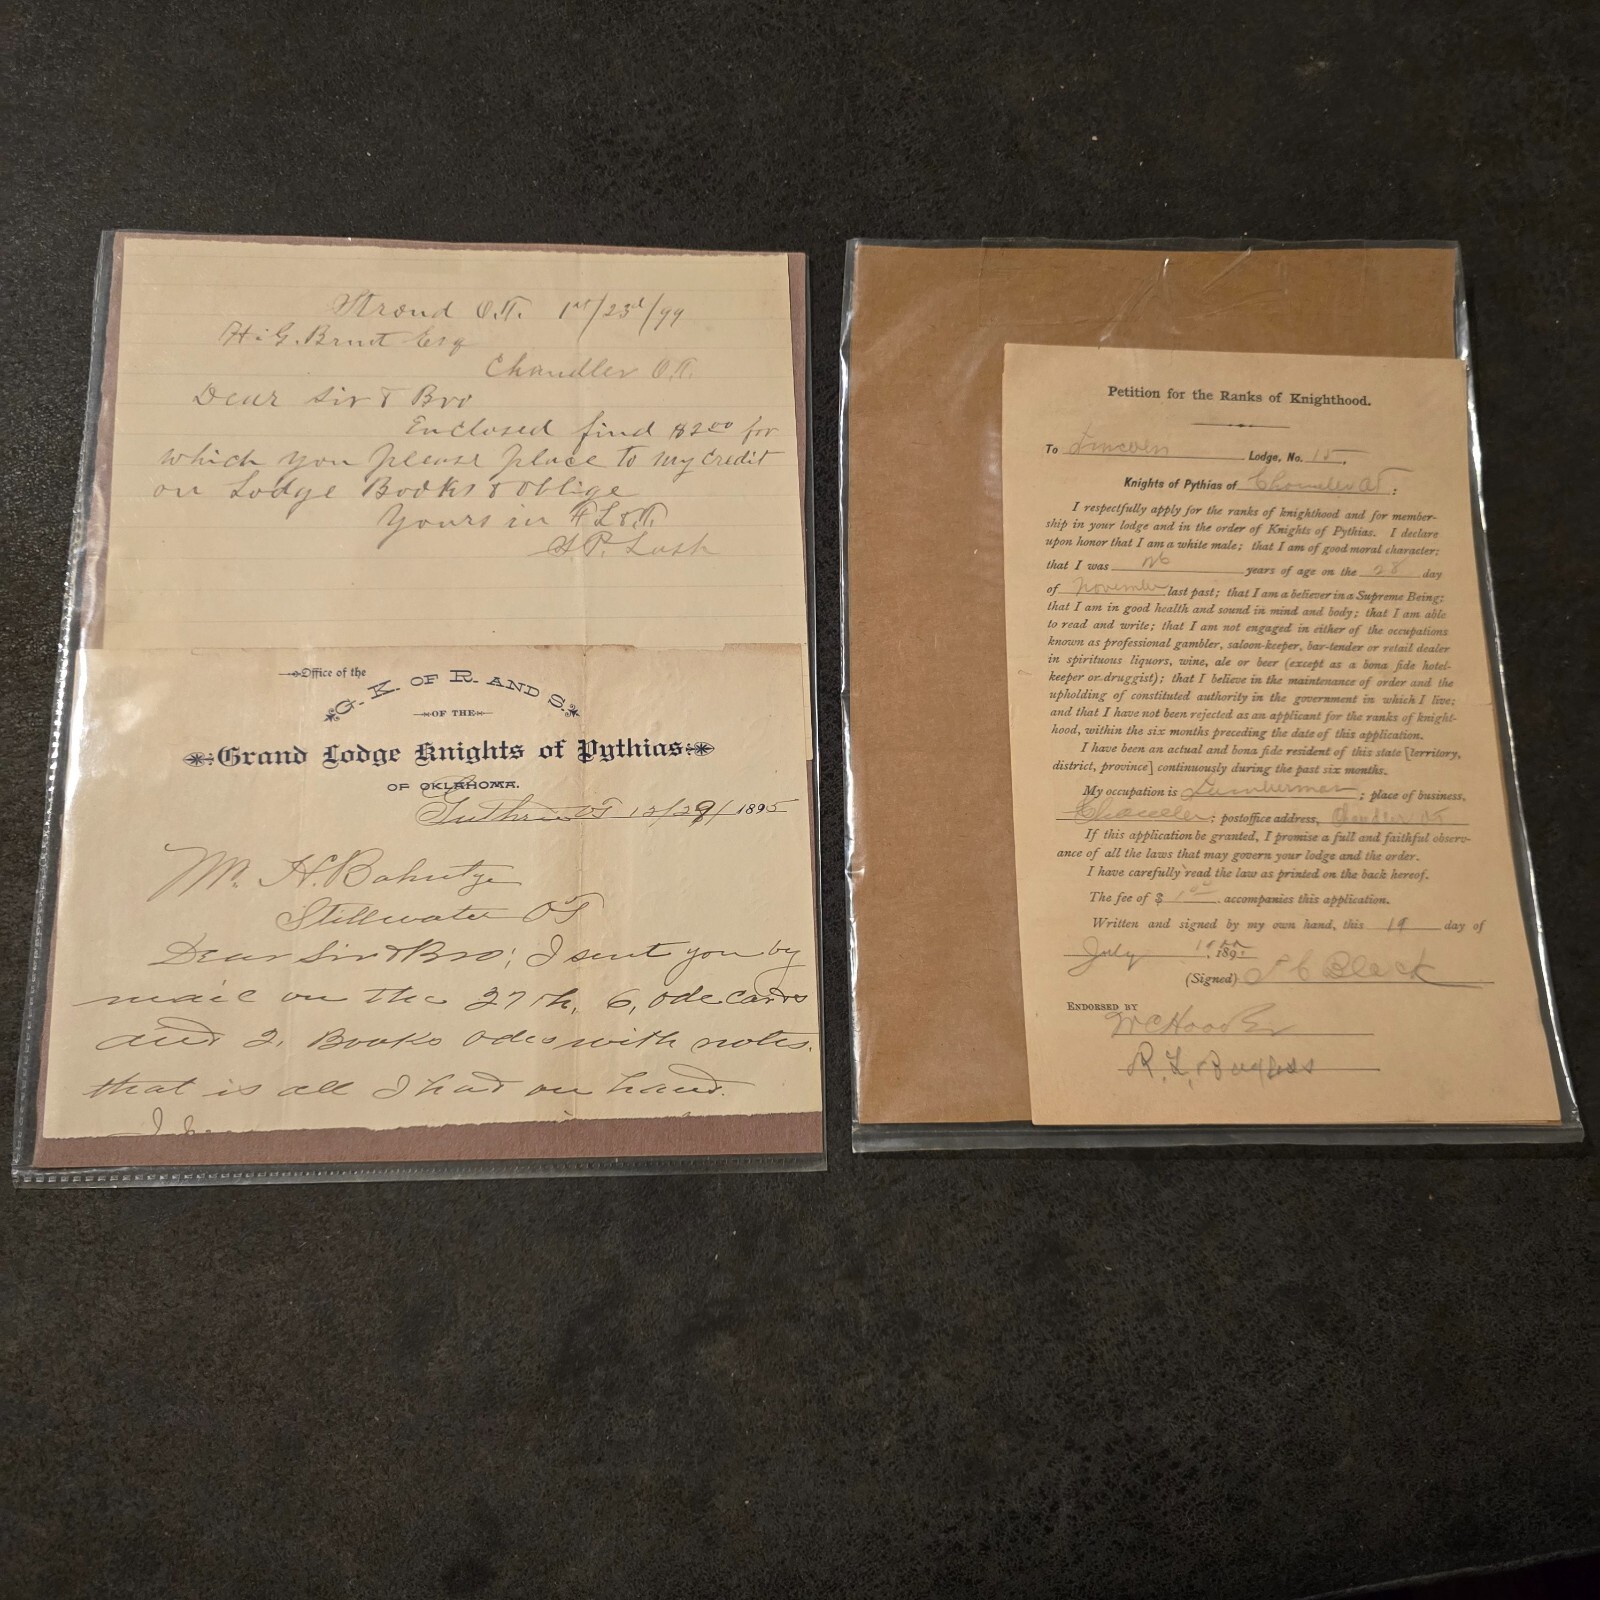 Stroud O.T. 1st/23d/99
H. G. Brunt Esq
Chandler O.T.
Dear Sir & Bro
Enclosed find $2.00 for
which you please place to my credit
on Lodge Books & oblige
Yours in F L & T.
S P. Lash
Office of the
G. K. OF R. AND S.
OF THE
Grand Lodge Knights of Pythias
OF OKLAHOMA.
Guthrie OT 12/29/1895
Mr. H.
Stillwater OT
Dear Sir & Bro; I sent you by
mail on the 27th, 6, ode cards
and 2, Books odes with notes.
that is all I had on hand.
Petition for the Ranks of Knighthood.
To Lincoln Lodge, No. 15,
Knights of Pythias of Chandler OT:
I respectfully apply for the ranks of knighthood and for member-
ship in your lodge and in the order of Knights of Pythias. I declare
upon honor that I am a white male; that I am of good moral character;
that I was 26 years of age on the 28 day
of November last past; that I am a believer in a Supreme Being;
that I am in good health and sound in mind and body; that I am able
to read and write; that I am not engaged in either of the occupations
known as professional gambler, saloon-keeper, bar-tender or retail dealer
in spirituous liquors, wine, ale or beer (except as a bona fide hotel-
keeper or druggist); that I believe in the maintenance of order and the
upholding of constituted authority in the government in which I live;
and that I have not been rejected as an applicant for the ranks of knight-
hood, within the six months preceding the date of this application.
I have been an actual and bona fide resident of this state [territory,
district, province] continuously during the past six months.
My occupation is Lumberman; place of business,
Chandler; postoffice address, Chandler OT
If this application be granted, I promise a full and faithful observ-
ance of all the laws that may govern your lodge and the order.
I have carefully read the law as printed on the back hereof.
The fee of $ 1.00 accompanies this application.
Written and signed by my own hand, this 19 day of
July 189
(Signed) J C Black
ENDORSED BY
W C Hooker
R. L.